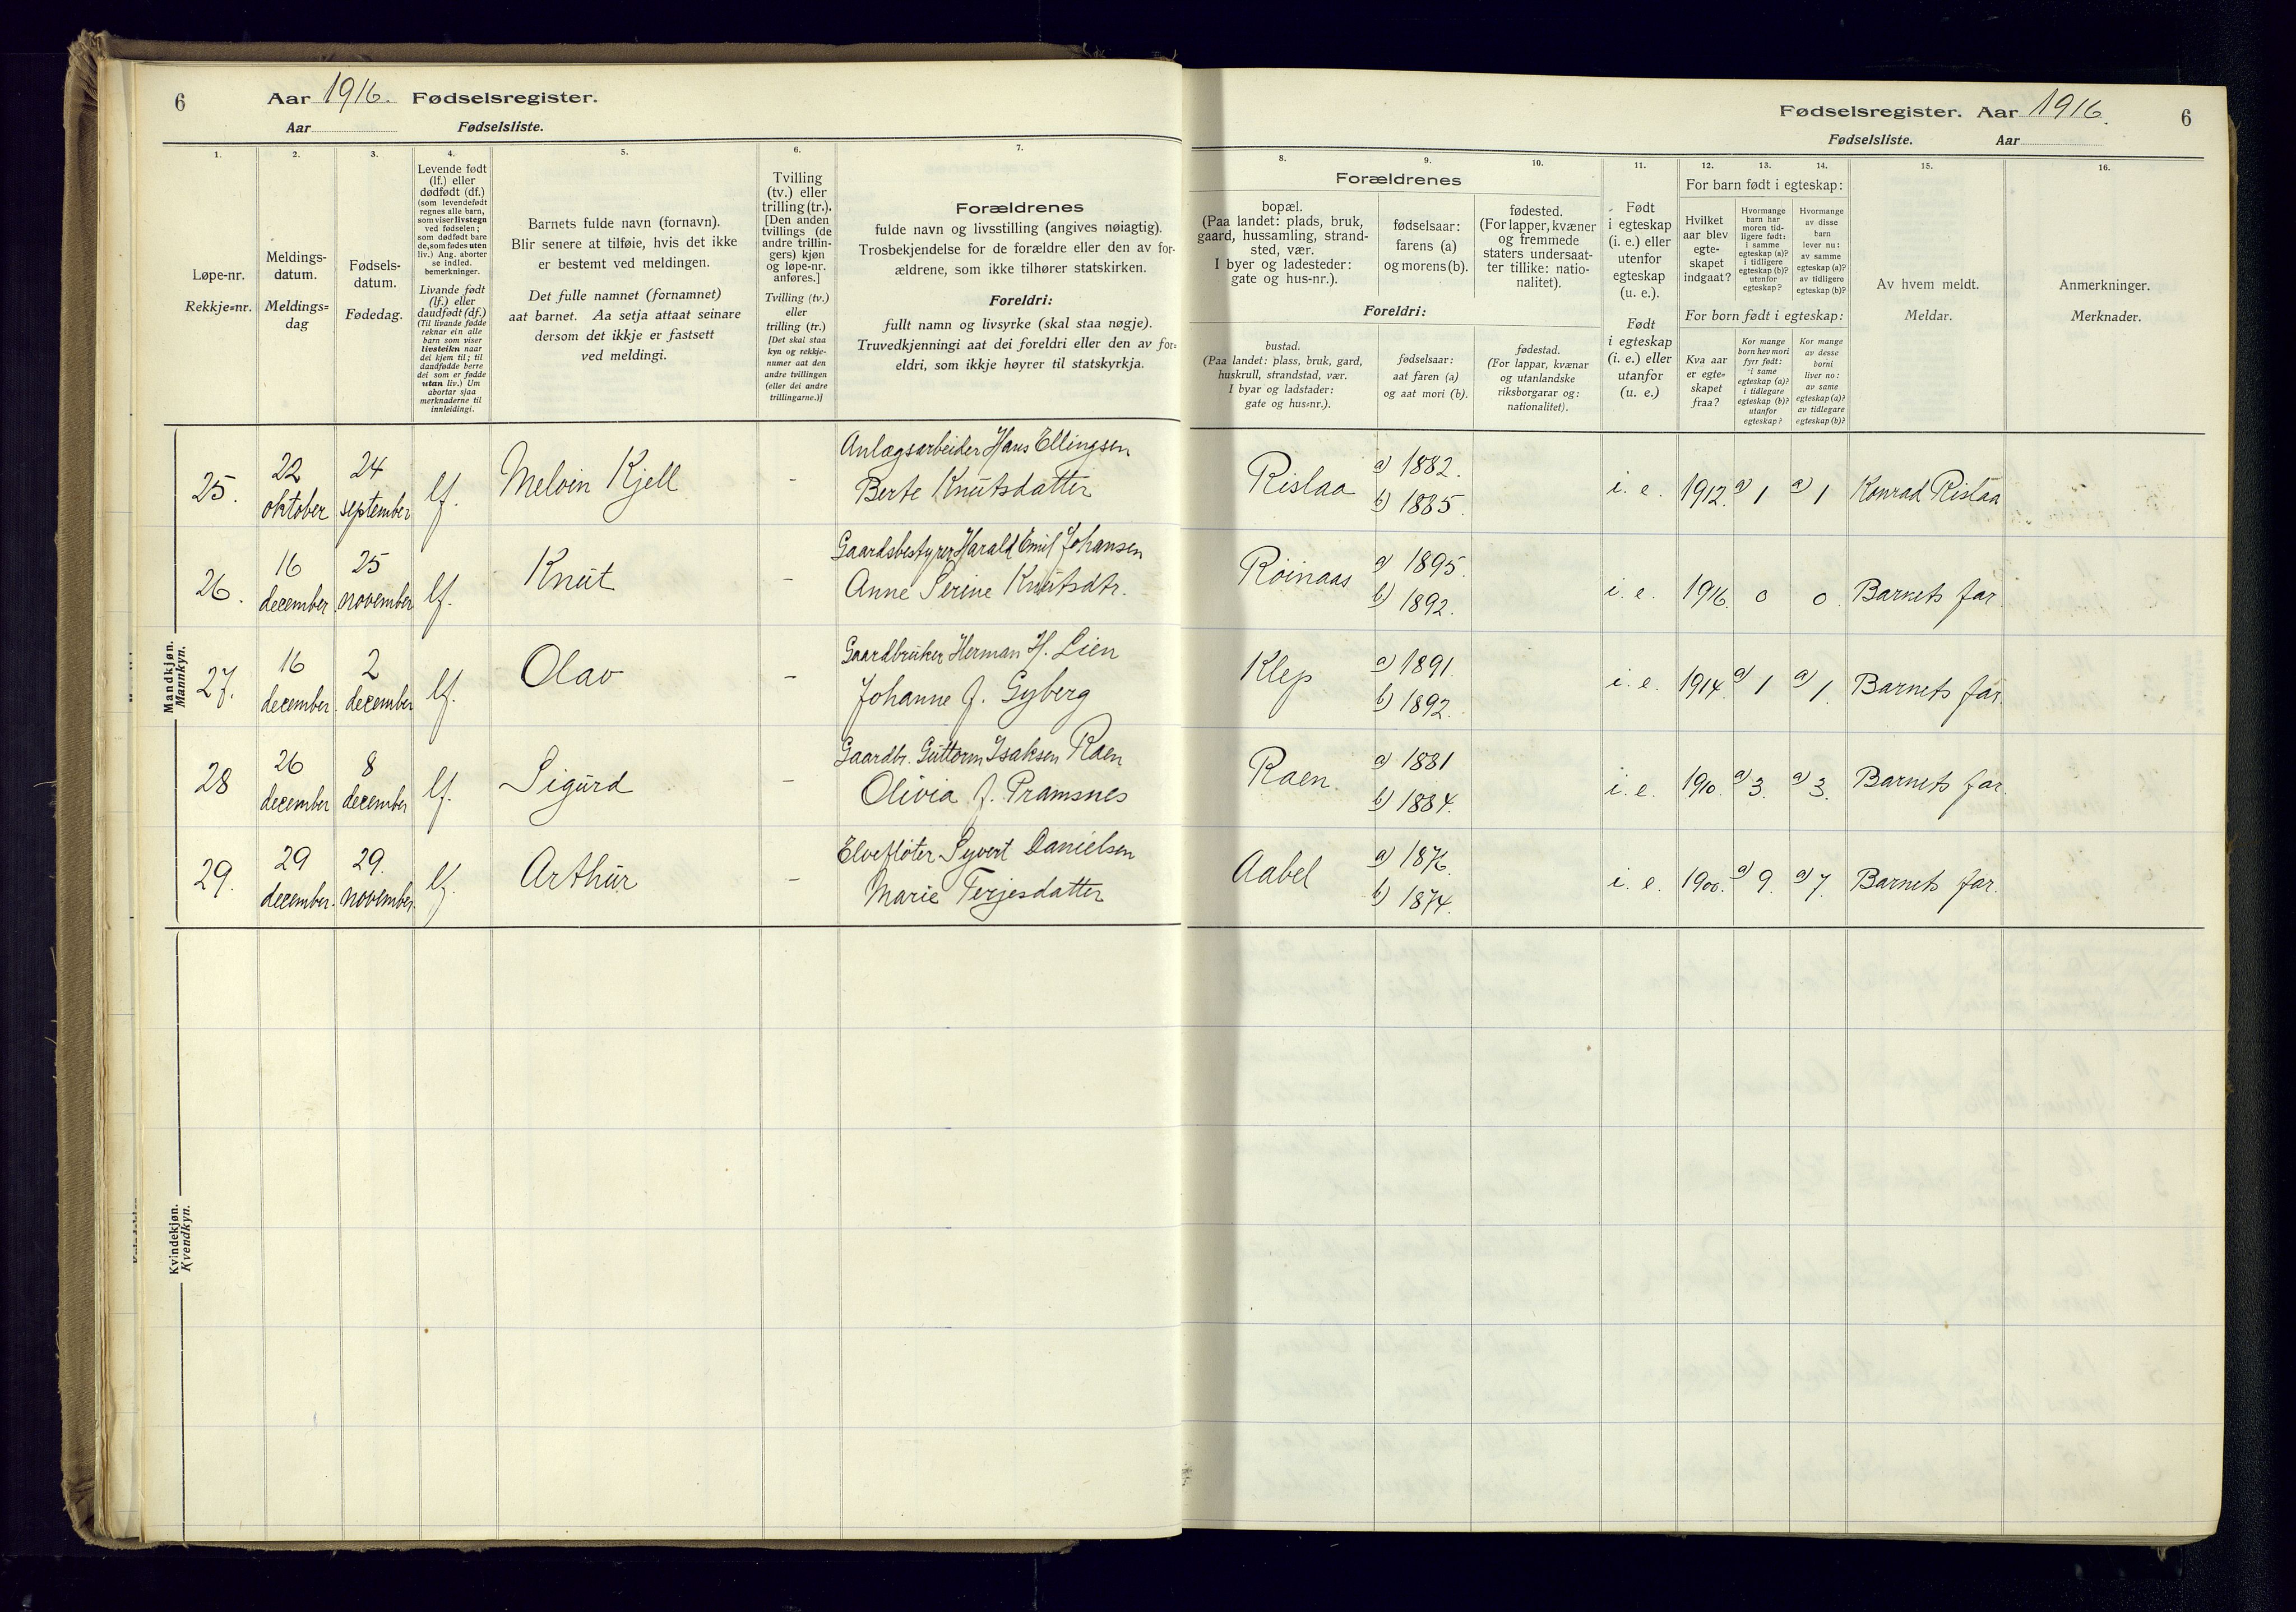 6
Aar 1916. Fødselsregister.
Aar Fødselsliste.
1.
Løpe-nr.
Rekkje=nr.
2.
Meldings-
datum.
Meldings=
dag
3.
Fødsels-
datum.
Fødedag.
4.
Levende født
(lf.) eller
dødfødt (df.)
(som levendefødt
regnes alle barn,
som viser livstegn
ved fødselen;
som dødfødt bare
de, som fødes uten
liv.) Ang. aborter
se indled.
bemerkninger.
Livande født
(lf.) eller
daudfødt (df.)
(Til livande fødde
reknar ein alle
barn som viser
livsteikn naar
dei kjem til; til
daudfødde berre
dei som er fødde
utan liv.) Um
abortar sjaa
merknaderne til
innleidingi.
5.
Barnets fulde navn (fornavn).
Blir senere at tilføie, hvis det ikke
er bestemt ved meldingen.
Det fulle namnet (fornamnet)
aat barnet. Aa setja attaat seinare
dersom det ikkje er fastsett
ved meldingi.
6.
Tvilling
(tv.) eller
trilling (tr.).
[Den anden
tvillings (de
andre trillin-
gers) kjøn
og løpe-nr.
anføres.]
Tvilling (tv.)
eller
trilling (tr.)
[Det skal staa
kyn og rekkje-
numer aat den
andre tvillingen
(eller dei andre
trillingarne.)]
7.
Forældrenes
fulde navn og livsstilling (angives nøiagtig).
Trosbekjendelse for de forældre eller den av for-
ældrene, som ikke tilhører statskirken.
Foreldri:
fullt namn og livsyrke (skal staa nøgje).
Truvedkjenningi aat dei foreldri eller den av for=
eldri, som ikkje høyrer til statskyrkja.
Fødselsregister. Aar 1916.
6
Fødselsliste. Aar
8.
9.
10.
Forældrenes
bopæl.
(Paa landet: plads, bruk,
gaard, hussamling, strand-
sted, vær.
I byer og ladesteder:
gate og hus-nr.).
fødselsaar:
farens (a)
og morens (b).
fødested.
(For lapper, kvæner
og fremmede
staters undersaat-
ter tillike: natio-
nalitet).
Foreldri:
bustad.
(Paa landet: plass, bruk, gard,
huskrull, strandstad, vær.
I byar og ladstader:
gate og hus=nr.).
fødselsaar:
aat faren (a)
og aat mori (b).
fødestad.
(For lappar, kvænar
og utanlandske
riksborgarar og:
nationalitet).
11.
Født
i egteskap
(i. e.) eller
utenfor
egteskap
(u. e.).
Født
i egteskap
(i. e.) eller
utanfor
(u. e.)
12.
13.
14.
For barn født i egteskap:
Hvilket
aar blev
egte-
skapet
indgaat?
Hvormange
barn har
moren tid-
ligere født:
i samme
egteskap (a)?
i tidligere
egteskap (b)?
utenfor
egteskap?
Hvormange
av disse
barn
lever nu:
av samme
egteskap (a)?
av tidligere
egteskap (b)?
For born født i egteskap:
Kva aar
er egte=
skapet
fraa?
Kor mange
born hev mori
fyrr født:
i same
egteskap (a)?
i tidlegare
egteskap (b)?
utanfor
egteskap?
Kor mange
av desse
borni
liver no:
av same
egteskap (a)?
av tidlegare
egteskap (b)?
15.
Av hvem meldt.
Meldar.
16.
Anmerkninger.
Merknader.
Mandkjøn.
Mannkyn.
25. 22 oktober 24 september lf. Melvin Kjell - Anlægsarbeider Hans Ellingsen
Berte Knutsdatter
Rislaa a) 1882. b) 1885. i. e. 1912. a) 1 a) 1 Konrad Rislaa
26. 16 december 25 november lf. Knut - Gaardsbestyrer Harald Emil Johansen
Anne Serine Knutsdtr.
Roinaas a) 1895. b) 1892. i. e. 1916. 0 0. Barnets far.
27. 16 december. 2 december lf. Olav - Gaardbruker Herman H. Lien
Johanne J. Gyberg
Klep a) 1891. b) 1892. i. e. 1914. a) 1 a) 1. Barnets far.
28 26 december 8 december lf. Sigurd - Gaardbr. Guttorm Isaksen Raen
Olivia J. Pramsnes
Raen. a) 1881 b) 1884. i. e. 1910. a) 3. a) 3. Barnets far.
29. 29 december. 29. november. lf. Arthur - Elvefløter Syvert Danielsen
Marie Terjesdatter
Aabel a) 1876. b) 1874. i. e. 1900. a) 9. a) 7. Barnets far.
Kvindekjøn.
Kvendkyn.